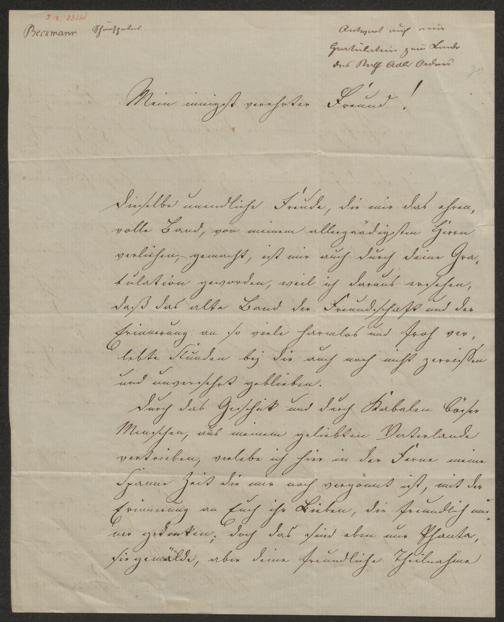 Beckmann Schauspieler
Antwort auf mein
Gratulation zum Bande
des Roth Adler Ordens
Mein innigst verehrter Freund!
Dieselbe unendliche Freude, die mir das ehren,
volle Band, von meinem allergnädigsten Herrn
verliehen, gemacht, ist mir auch durch deine Gra,
tulation geworden, weil ich daraus ersehen,
daß das alte Band der Freundschaft und der
Erinnerung an so viele harmlos und froh ver,
lebte Stunden bej dir auch noch nicht zerrissen
und unversehrt geblieben.
Durch das Geschick und durch Kabalen böser
Menschen, aus meinem geliebten Vaterlande
vertrieben, verlebe ich hier in der Ferne meine
Spanne Zeit die mir noch vergönnt ist, mit der
Erinnerung an Euch ihr Lieben, die freundlich mei
ner gedenken; doch das sind eben nur Phanta,
siegemälde, aber deine freundliche Theilnahme